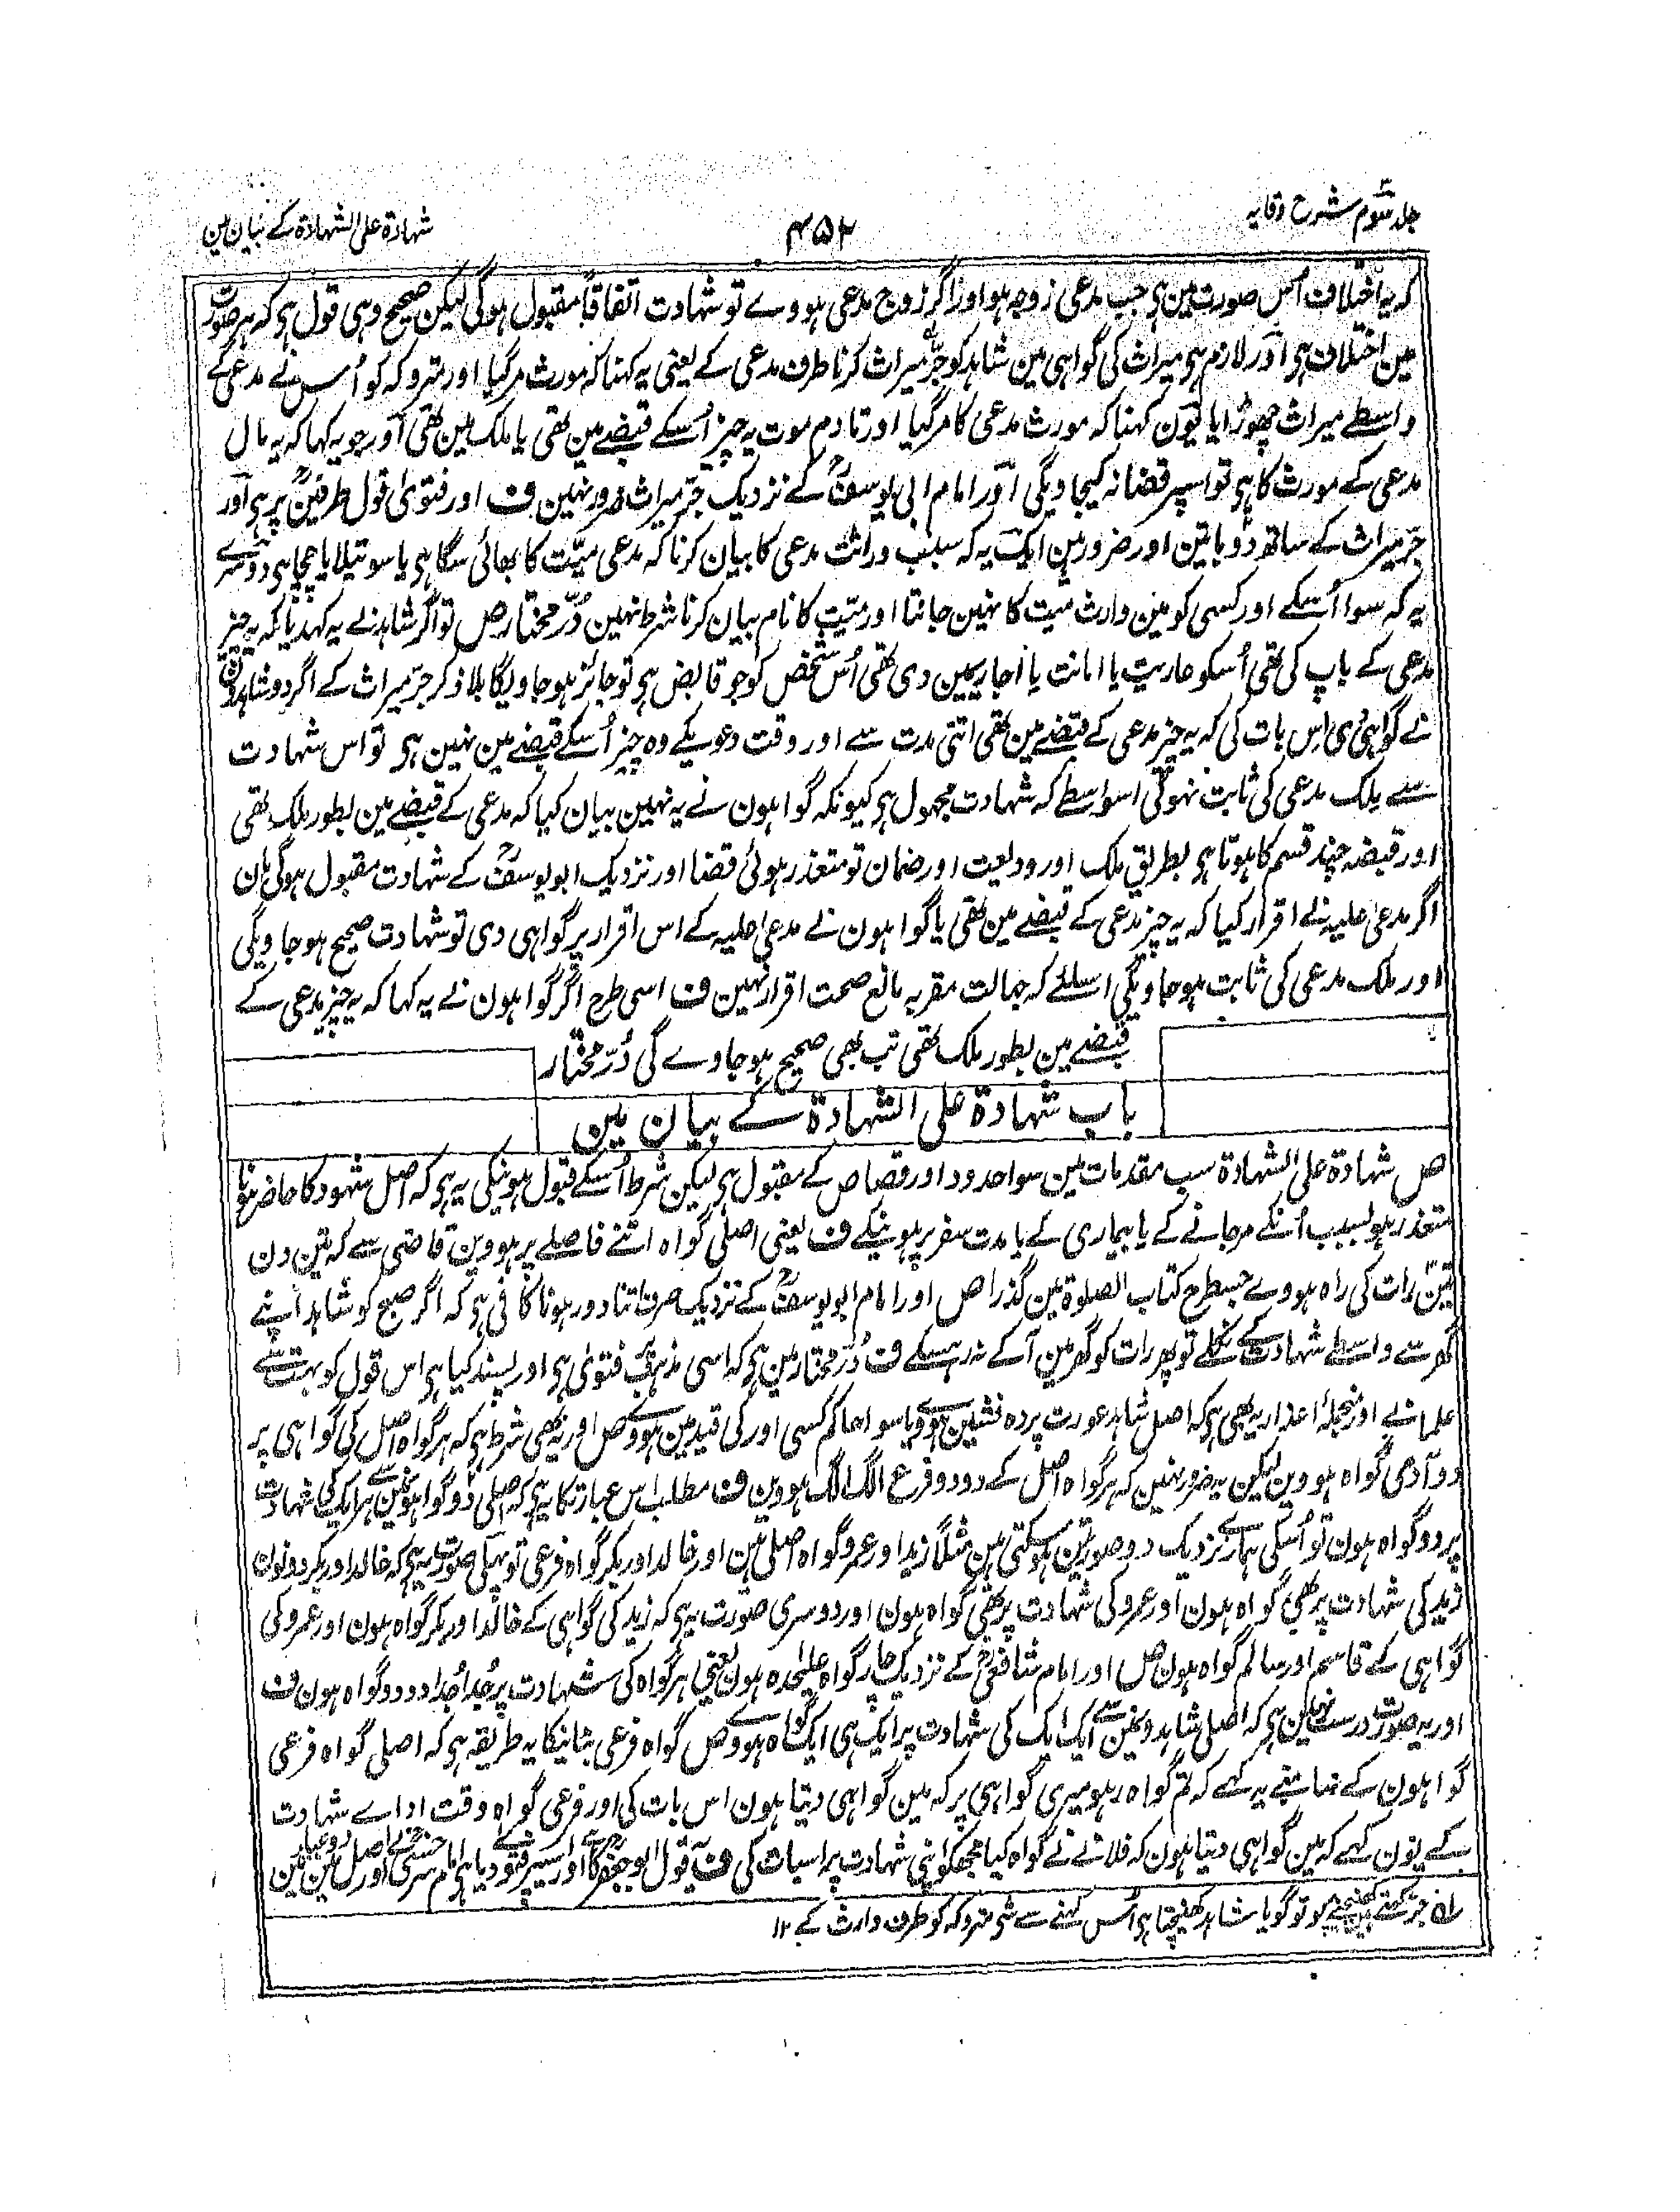 جلد سوم شرح وقایہ
۴۵۲
شہادۃ علی الشہادۃ کے بیان مین
کہ یہ اختلاف اُس صورت مین ہی جب مدعی زوجہ ہو اور اگر زوج مدعی ہووے تو شہادت اتفاقاً مقبول ہوگی لیکن صحیح وہی قول ہی کہ ہر صورت
مین اختلاف ہی اور لازم ہی میراث کی گواہی مین شاہد کو جرّ میراث کرنا طرف مدعی کے یعنی یہ کہنا کہ مورث مرگیا اور متروکہ کو اُس نے مدعی کے
واسطے میراث چھوڑا یا یون کہنا کہ مورث مدعی کا مرگیا اور تادم موت یہ چیز اُسکے قبضے مین تھی یا ملک مین تھی اور جو یہ کہا کہ یہ مال
مدعی کے مورث کا ہی تو اسپر قضا نہ کیجاویگی اور امام ابی یوسفؒ کے نزدیک جرّ میراث ضرور نہین ف اور فتویٰ قول طرفینؒ پر ہی اور
جرّ میراث کے ساتھ دو باتین اور ضرور ہین ایک یہ کہ سبب وراثت مدعی کا بیان کرنا کہ مدعی میّت کا بھائی سگا ہی یا سوتیلا یا چچا ہی دوسرے
یہ کہ سوا اُسکے اور کسی کو مین وارث میت کا نہین جانتا اور میّت کا نام بیان کرنا شرط نہین دُرّ مختار ص تو اگر شاہد نے یہ کہدیا کہ یہ چیز
مدعی کے باپ کی تھی اُسکو عاریت یا امانت یا اجارہ مین دی تھی اُس شخص کو جو قابض ہی تو جائز ہوجاویگا بلا ذکر جرّ میراث کے اگر دو شاہدون
نے گواہی دی اس بات کی کہ یہ چیز مدعی کے قبضے مین تھی اتنی مدت سے اور وقت دعویکے وہ چیز اُسکے قبضے مین نہین ہی تو اس شہادت
سے ملک مدعی کی ثابت نہوگی اسواسطے کہ شہادت مجہول ہی کیونکہ گواہون نے یہ نہین بیان کیا کہ مدعی کے قبضے مین بطور ملک تھی
اور قبضہ چند قسم کا ہوتا ہی بطریق ملک اور ودیعت اور ضمان تو متعذر ہوئی قضا اور نزدیک ابو یوسفؒ کے شہادت مقبول ہوگی ہان
اگر مدعیٰ علیہ نے اقرار کیا کہ یہ چیز مدعی کے قبضے مین تھی یا گواہون نے مدعیٰ علیہ کے اس اقرار پر گواہی دی تو شہادت صحیح ہوجاویگی
اور ملک مدعی کی ثابت ہوجاویگی اسلئے کہ جہالت مقر بہ مانع صحت اقرار نہین ف اسی طرح اگر گواہون نے یہ کہا کہ یہ چیز مدعی کے
قبضے مین بطور ملک تھی تب بھی صحیح ہوجاوے گی دُرّ مختار
باب شہادۃ علی الشہادۃ کے بیان مین
ص شہادۃ علی الشہادۃ سب مقدمات مین سوا حدود اور قصاص کے مقبول ہی لیکن شرط اُسکے قبول ہونیکی یہ ہی کہ اصل شہود کا حاضر ہونا
متعذر ہو بسبب اُنکے مرجانے کے یا بیماری کے یا مدت سفر پر ہونیکے ف یعنی اصلی گواہ اتنے فاصلے پر ہووین قاضی سے کہ تین دن
تین رات کی راہ ہووے جسطرح کتاب الصلوۃ مین گذرا ص اور امام ابو یوسفؒ کے نزدیک صرف اتنا دور ہونا کافی ہی کہ اگر صبح کو شاہد اپنے
گھر سے واسطے شہادت کے نکلے تو پھر رات کو گھر مین آکے نہ رہسکے ف دُرّ مختار مین ہی کہ اسی مذہب پر فتویٰ ہی اور پسند کیا ہی اس قول کو بہت سے
علما نے اور منجملہ اعذار یہ بھی ہی کہ اصل شاہد عورت پردہ نشین ہووے یا سوا حاکم کسی اور کی قید مین ہووے ص اور یہ بھی شرط ہی کہ ہر گواہ اصل کی گواہی پر
دو آدمی گواہ ہووین لیکن یہ ضرور نہین کہ ہر گواہ اصل کے دو دو فرع الگ الگ ہووین ف مطلب اس عبارت کا یہ ہی کہ اصلی دو گواہونمین سے ہر ایک کی شہادت
پر دو گواہ ہون تو اُسکی ہمارے نزدیک دو صورتین ہوسکتی ہین مثلاً زید اور عمرو گواہ اصلی ہین اور خالد اور بکر گواہ فرعی تو پہلی صورت یہ ہی کہ خالد اور بکر دونون
زید کی شہادت پر بھی گواہ ہون اور عمرو کی شہادت پر بھی گواہ ہون اور دوسری صورت یہ ہی کہ زید کی گواہی کے خالد اور بکر گواہ ہون اور عمرو کی
گواہی کے قاسم اور سالم گواہ ہون ص اور امام شافعیؒ کے نزدیک چار گواہ علیحدہ ہون یعنی ہر گواہ کی شہادت پر جُدا جُدا دو دو گواہ ہون ف
اور یہ صورت درست نہین ہی کہ اصلی شاہدونمین سے ایک ایک کی شہادت پر ایک ہی ایک گواہ ہووے ص گواہ فرعی بنانیکا یہ طریقہ ہی کہ اصلی گواہ فرعی
گواہون کے سامنے یہ کہے کہ تم گواہ رہو میری گواہی پر کہ مین گواہی دیتا ہون اس بات کی اور فرعی گواہ وقت اداے شہادت
کے یون کہے کہ مین گواہی دیتا ہون کہ فلانے نے گواہ کیا مجھکو اپنی شہادت پر اسبات کی ف یہ قول ابو جعفرؒ کا ہی اور اسپر فتویٰ دیا ہی امام سرخسیؒ نے اور اصل مین
جرّ کہتے ہین کھینچنے کو تو گویا شاہد کھینچتا ہی اُس کہنے سے شی متروکہ کو طرف وارث کے ۱۲